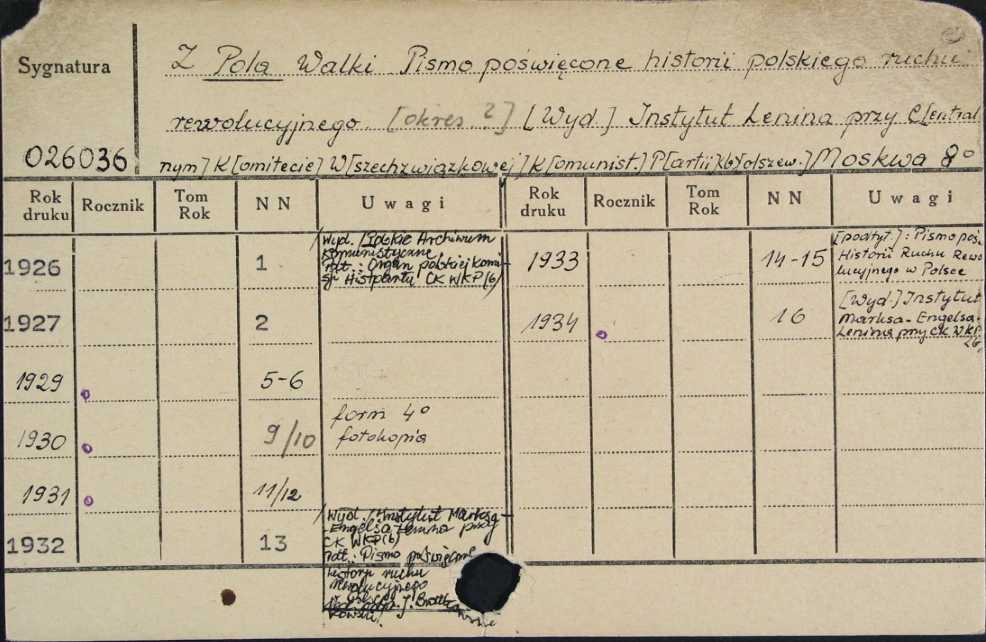 Sygnatura
026036
Z Pola Walki Pismo poświęcone historii polskiego ruchu
rewolucyjnego [okres ?] [Wyd.] Instytut Lenina przy C[entral
nym] K[omitecie] W[szechzwiązkowej] K[omunist.] P[artii](b)[olszew.] Moskwa 8°
Rok druku Rocznik Tom Rok NN Uwagi Rok druku Rocznik Tom Rok NN Uwagi
1926 1
Wyd. Polskie Archiwum
Komunistyczne
Organ polskiej Komi-
sji Histpartu CK WKP(b)
1927 2
1929 5-6
1930 9/10 form 4°
fotokopia
1931 11/12
1932 13
Wyd. Instytut Marksa-
Engelsa Lenina przy
CK WKP(b)
Pismo poświęcone
historji ruchu
rewolucyjnego
1933 14-15
[podtyt.]: Pismo poś.
Historii Ruchu Rewo
lucyjnego w Polsce
1934 16
[Wyd.] Instytut
Marksa-Engelsa-
Lenina przy CK WKP